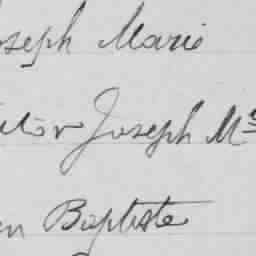 oseph Marie
ctor Joseph M.s
en Baptiste